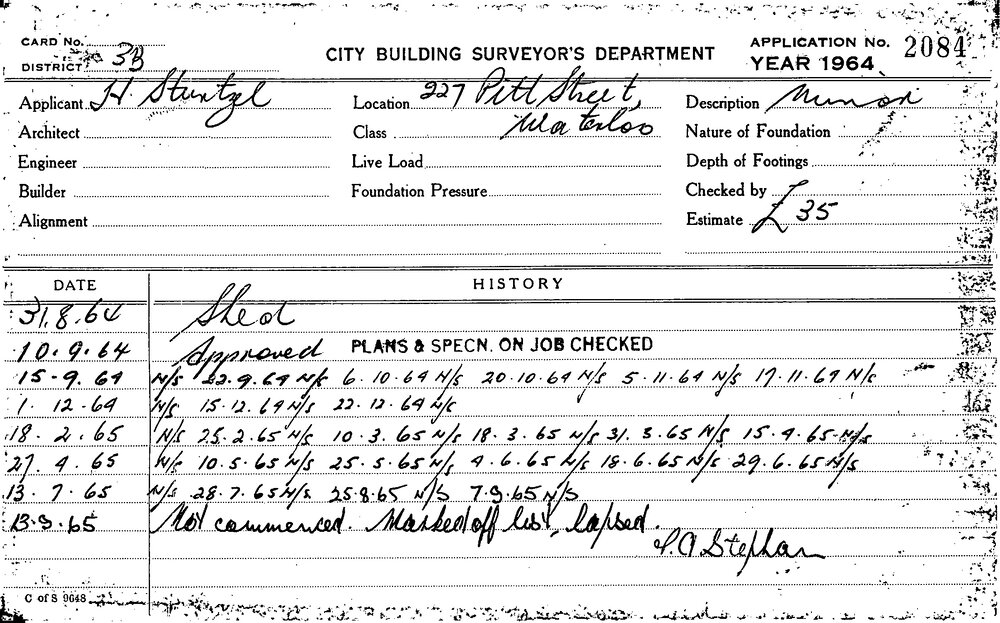 CARD No.
DISTRICT 3B
CITY BUILDING SURVEYOR'S DEPARTMENT
APPLICATION No. 2084
YEAR 1964
Applicant H Sturtzel
Location 227 Pitt Street,
Waterloo
Description Minor
Architect
Class
Nature of Foundation
Engineer
Live Load
Depth of Footings
Builder
Foundation Pressure
Checked by
Alignment
Estimate £ 35
DATE HISTORY
31.8.64 Shed
10.9.64 Approved PLANS & SPECN. ON JOB CHECKED
15.9.64 N/S 22.9.64 N/S 6.10.64 N/S 20.10.64 N/S 5.11.64 N/S 17.11.64 N/S
1.12.64 N/S 15.12.64 N/S 22.12.64 N/S
18.2.65 N/S 25.2.65 N/S 10.3.65 N/S 18.3.65 N/S 31.3.65 N/S 15.4.65 N/S
27.4.65 N/S 10.5.65 N/S 25.5.65 N/S 4.6.65 N/S 18.6.65 N/S 29.6.65 N/S
13.7.65 N/S 28.7.65 N/S 25.8.65 N/S 7.9.65 N/S
13.9.65 Not commenced. Marked off list, lapsed.
Stephan
C of S 9648